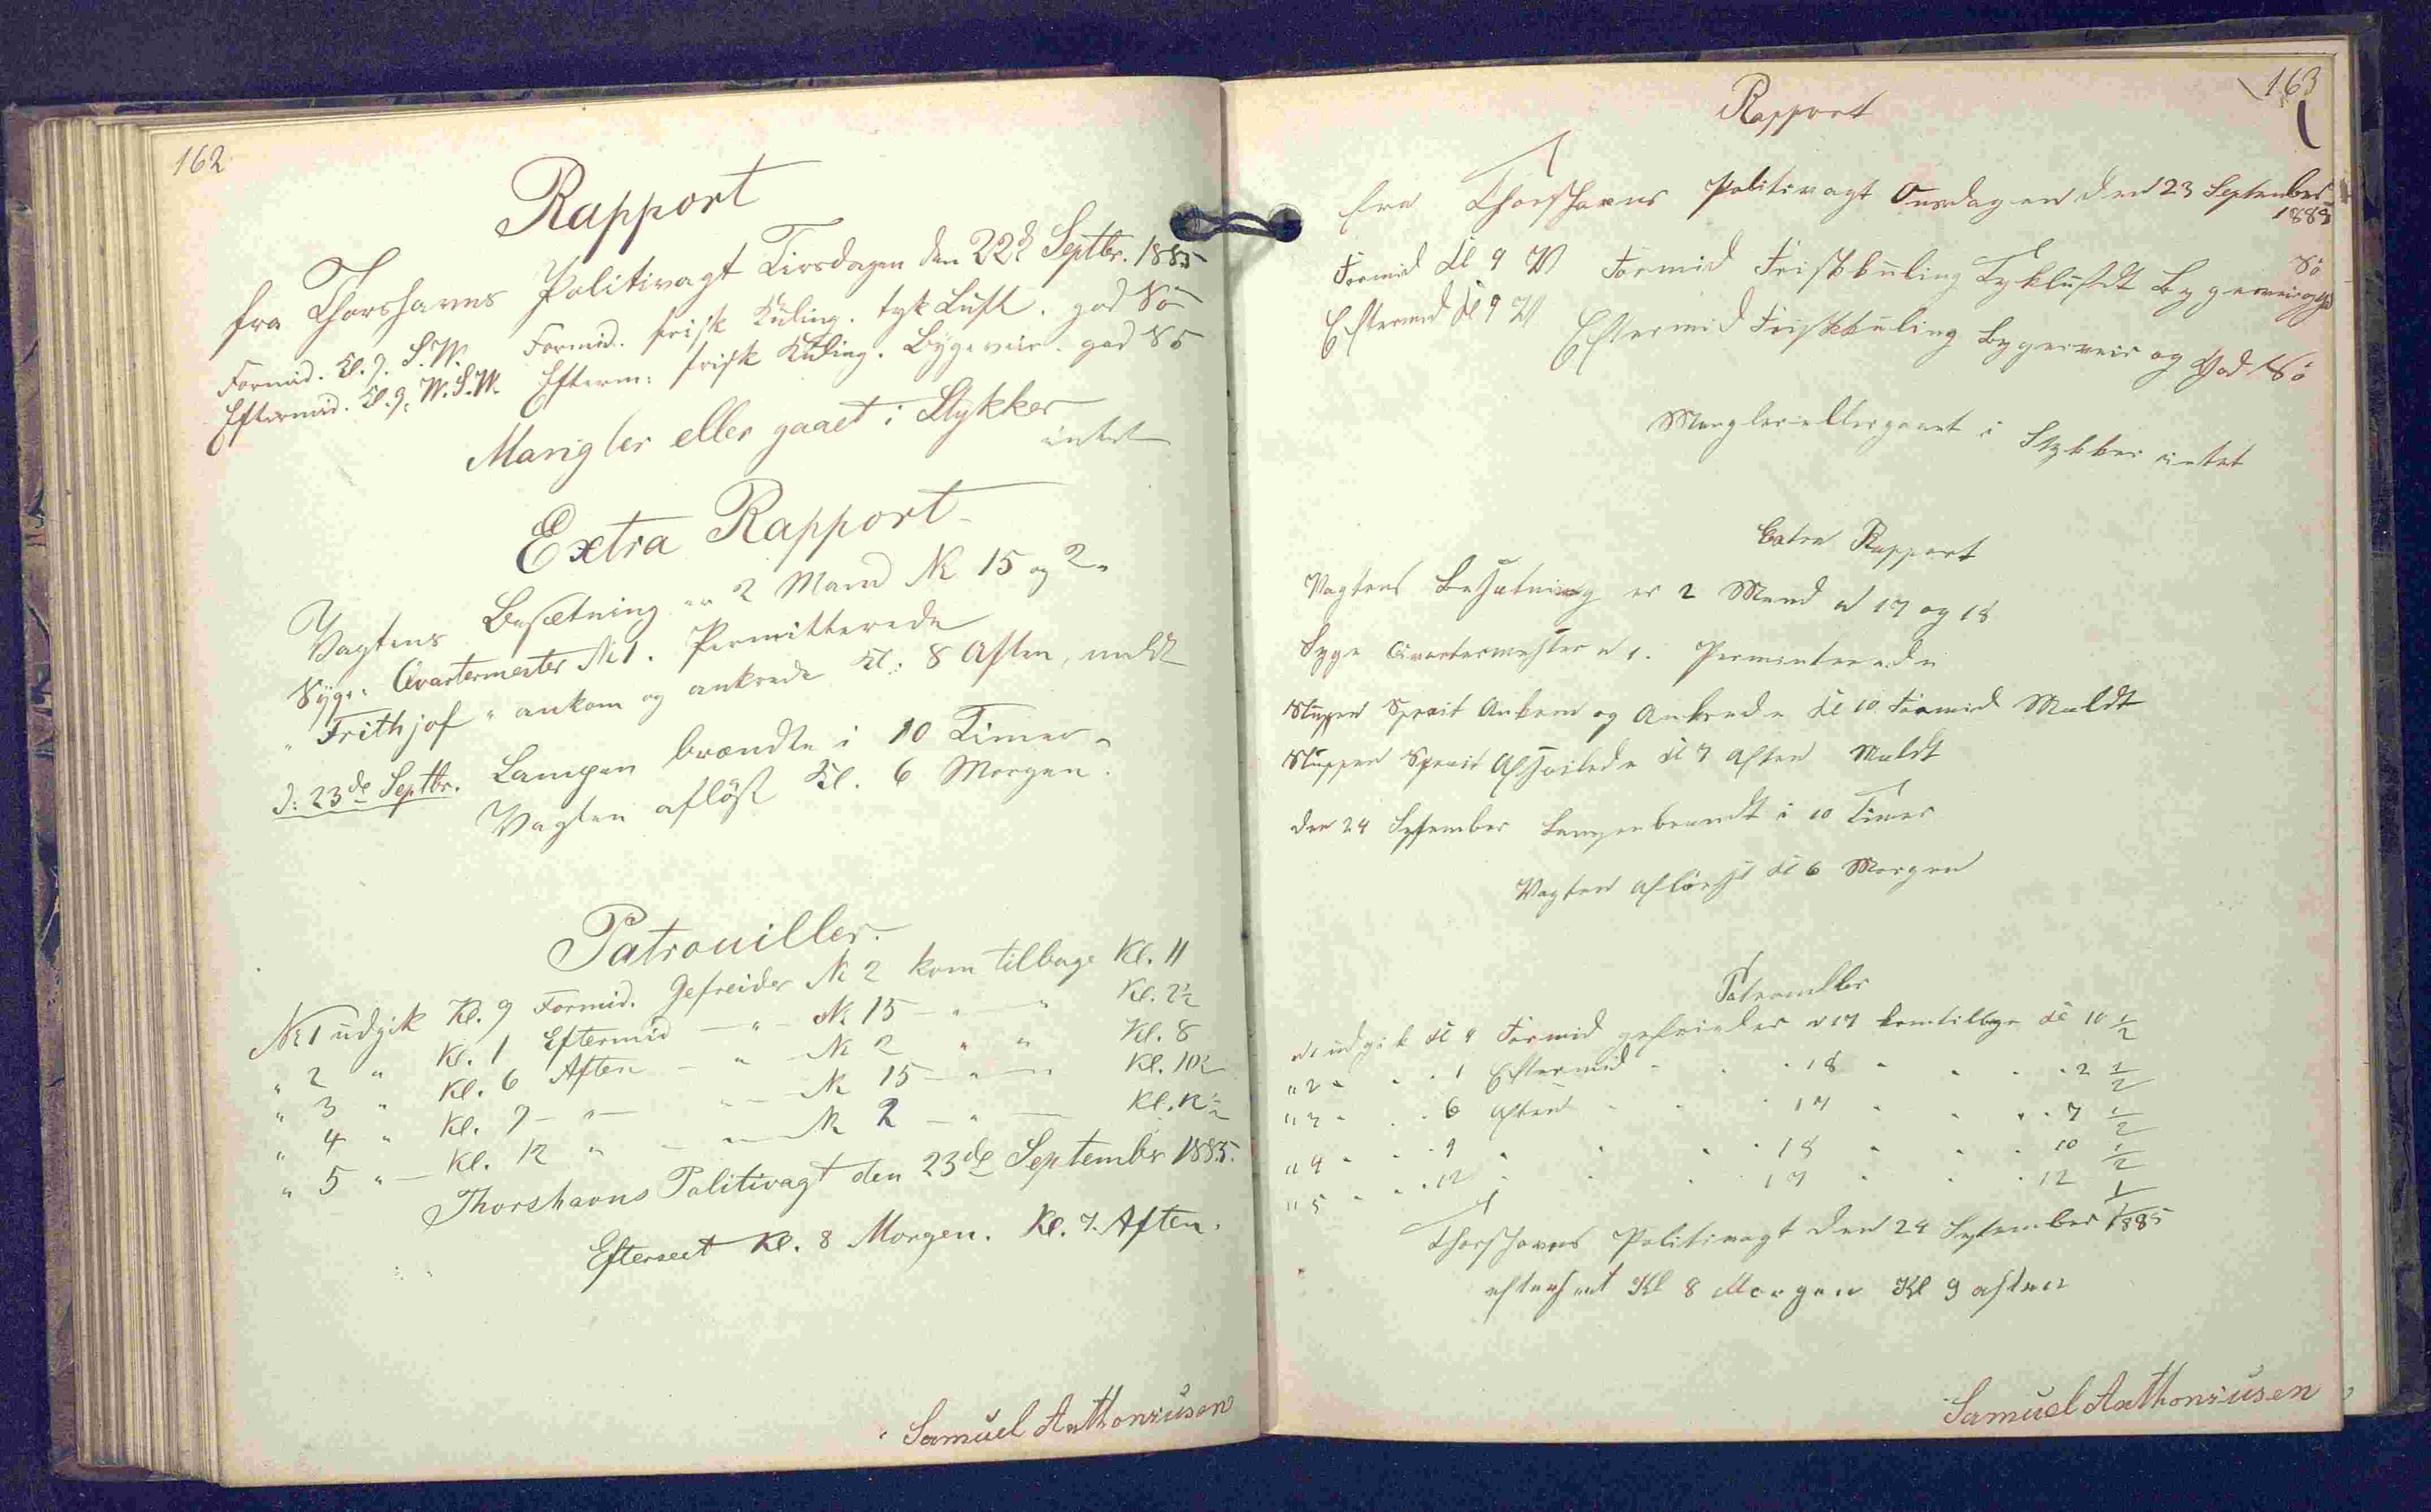 162
Rapport
fra Thorshavns Politivagt Tirsdagen den 22d Septbr. 1885
Formid. Kl. 9. S.W. Formid. frisk Kuling. tyk Luft. god Sö
Eftermid. Kl. 9. W.S.W. Efterm: frisk Kuling. Bygeveir. god Sö
Mangler eller gaaet i Stykker
intet
Extra Rapport
Vagtens Besætning er 2 Mand № 15 og 2.
Syge: Qvartermester № 1. Permitterede
"Frithjof" ankom og ankrede Kl: 8 Aften, meldt
d: 23de Septbr. Lampen brændte i 10 Timer.
Vagten aflöst Kl. 6 Morgen.
Patrouiller.
№ 1 udgik Kl. 9 Formid. Gefreider № 2 kom tilbage Kl. 11
" 2 " Kl. 1 Eftermid — " — № 15 — " — " Kl. 2½
" 3 " Kl. 6 Aften — " — № 2 " " Kl. 8
" 4 " Kl. 9 — " — " — № 15 — " — Kl. 10½
" 5 " — Kl. 12 " — " — № 2 — " — Kl. 12½
Thorshavns Politivagt den 23de September 1885.
Efterseet Kl. 8 Morgen. Kl. 7. Aften.
Samuel Anthoniusen
163
Rapport
fra Thorshavns Politivagt Onsdagen den 23 September
1885
Formid Kl 9 W Formid Friskkuling Tykluft Bygeveir og god Sö
Eftermid Kl 9 W Eftermid Friskkuling Bygerveir og God Sö
Mangler eller gaaet i Stykker intet
Extra Rapport
Vagtens Besætning er 2 Mand № 17 og 18
Syge Qvartermester № 1. Permiterede
Sluppen Spruit Ankom og Ankrede Kl 10 Formid Meldt
Sluppen Spruit Afseilede Kl 7 Aften Meldt
Den 24 September Lampen brændt i 10 Timer
Vagten Aflöest Kl 6 Morgen
Patrouller
№ 1 udgik Kl 9 Formid gefreider № 17 kom tilbage Kl 10 ½
" 2 " " " 1 Eftermid " " " 18 " " " 2 ½
" 3 " " " 6 Aften " " " 17 " " " 7 ½
" 4 " " " 9 " " " " 18 " " " 10 ½
" 5 " " " 12 " " " " 17 " " " 12 ½
Thorshavns Politivagt den 24 September 1885
efterseet Kl 8 Morgen Kl 9 aften
Samuel Anthoniusen